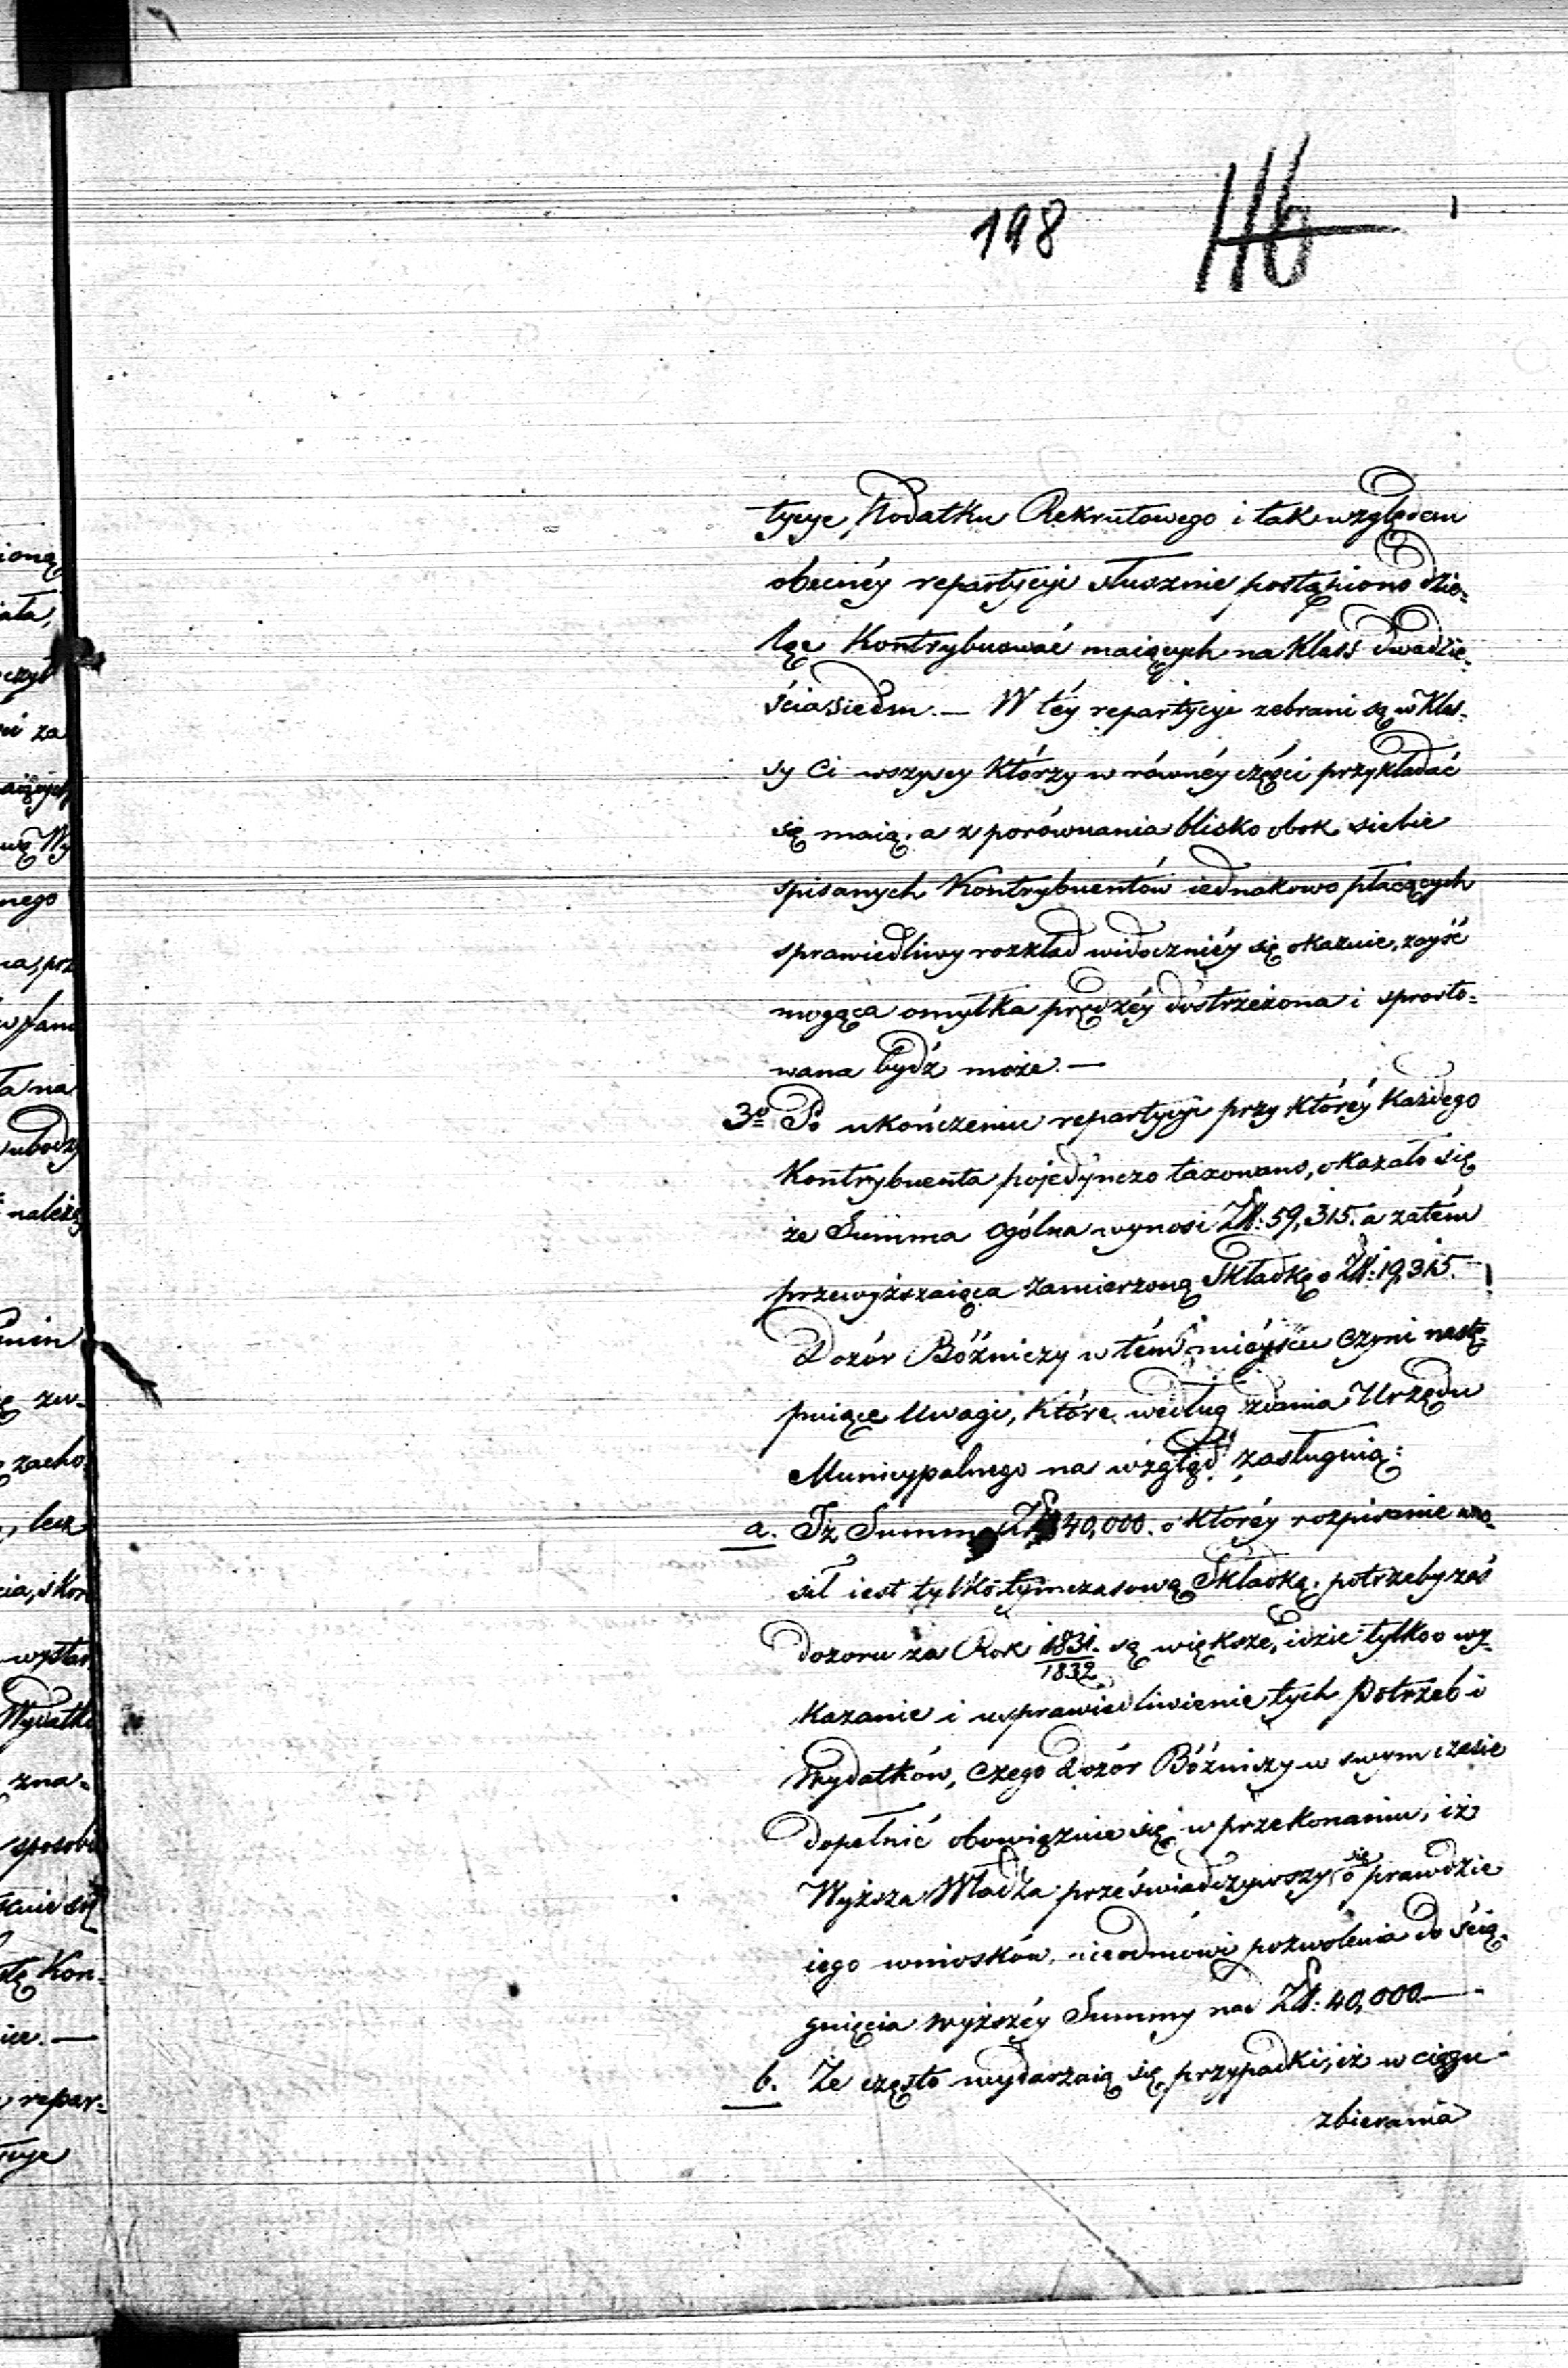 198 116
tycye Podatku Rekrutowego i tak względem
obecnéy repartycyi słusznie postąpiono dzie-
ląc Kontrybuować maiących na Klass dwadzie-
ścia siedm. — W téy repartycyi zebrani są w Klas-
sy Ci wszyscy którzy w równéy części przykładać
się maią, a z porównania blisko obok siebie
spisanych Kontrybuentów iednakowo płacących
sprawiedliwy rozkład widoczniéy się okazuie, zayść
mogąca omyłka prędzéy dostrzeżona i sprosto-
wana bydź może. —
3o Po ukończeniu repartycyi przy któréy każdego
Kontrybuenta pojedynczo taxowano, okazało się
że Summa ogólna wynosi Zł: 59,315. a zatém
przewyższaiąca zamierzoną Składkę o Zł: 19,315.
Dozór Bóżniczy w tém mieyscu czyni nastę-
puiące Uwagi, które według zdania Urzędu
Municypalnego na wzgląd zasługuią:
a. Iż Summa Zł 40,000. o któréy rozpisanie wno-
sił iest tylko tymczasową Składką, potrzeby zaś
dozoru za Rok 1831/1832 są większe, idzie tylko o wy-
kazanie i usprawiedliwienie tych Potrzeb i
Wydatków, czego Dozór Bóżniczy w swym czasie
dopełnić obowiązuie się w przekonaniu, iż
Wyższa Władza przeświadczywszy się o prawdzie
iego wniosków, nieodmówi pozwolenia do ścią-
gnięcia wyższéy Summy nad Zł: 40,000 —
b. Że często wydarzaią się przypadki, iż w ciągu
zbierania